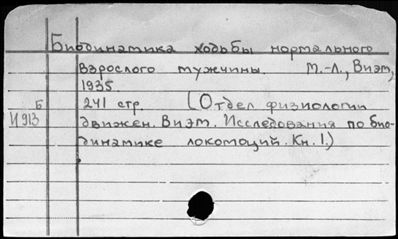 Биодинамика ходьбы нормального
взрослого мужчины. М.-Л., Виэм,
1935.
241 стр. (Отдел физиологии
Б
И913
движен. Виэм. Исследования по био-
динамике локомоций. Кн. 1.)